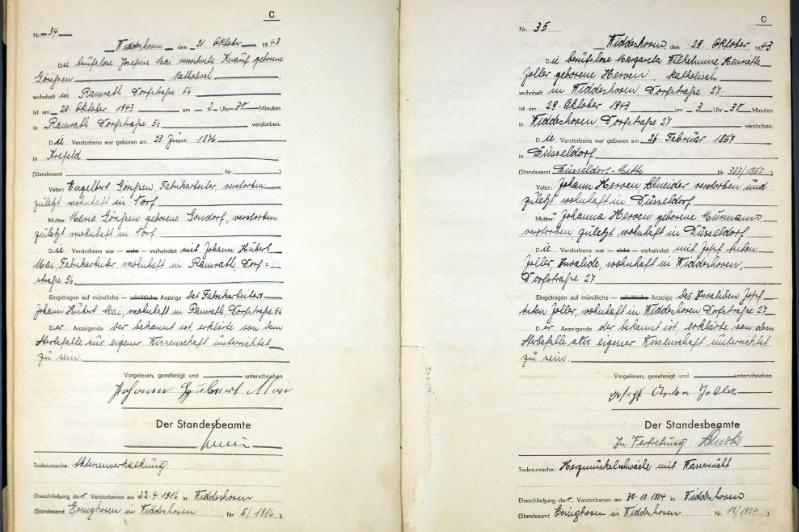 C
Nr. 34
Widdeshoven den 21. Oktober 1943
Die berufslose Josefine Mai verwitwete Knauf geborene
Gönssen, katholisch
wohnhaft in Ramrath Dorfstraße 56
ist am 20. Oktober 1943 um 2 Uhr 30 Minuten
in Ramrath Dorfstraße 56 verstorben.
Die Verstorbene war geboren am 23. Juni 1876
in Krefeld
(Standesamt Nr. )
Vater: Engelbert Gönssen, Fabrikarbeiter verstorben
zuletzt wohnhaft in
Mutter: Gönssen geborene verstorben
zuletzt wohnhaft in
Die Verstorbene war — nicht — verheiratet mit Johann Hubert
Mai, Fabrikarbeiter, wohnhaft in Ramrath, Dorf-
straße 56
Eingetragen auf mündliche — schriftliche — Anzeige des Fabrikarbeiters
Johann Hubert Mai, wohnhaft in Ramrath, Dorfstraße 56
Der Anzeigende der bekannt ist, erklärte von dem
Sterbefalle aus eigener Wissenschaft unterrichtet
zu sein.
Vorgelesen, genehmigt und unterschrieben
Johann Hubert Mai
Der Standesbeamte
Todesursache: Arterienverkalkung
Eheschließung der Verstorbenen am 22.4.1916 in Widdeshoven
(Standesamt Evinghoven in Widdeshoven Nr. 5/1916 )
C
Nr. 35
Widdeshoven den 29. Oktober 1943
Die berufslose Margareta Wilhelmine Henriette
Zoller geborene Herven, katholisch
wohnhaft in Widdeshoven, Dorfstraße 27
ist am 29. Oktober 1943 um 3 Uhr 30 Minuten
in Widdeshoven Dorfstraße 27 verstorben.
Die Verstorbene war geboren am 26. Februar 1867
in Düsseldorf
(Standesamt Düsseldorf-Mitte Nr. 307/1867 )
Vater: Johann Herven Schneider verstorben und
zuletzt wohnhaft in Düsseldorf
Mutter: Johanna Herven geborene
verstorben zuletzt wohnhaft in Düsseldorf
Die Verstorbene war — nicht — verheiratet mit Josef Anton
Zoller Invalide, wohnhaft in Widdeshoven,
Dorfstraße 27
Eingetragen auf mündliche — schriftliche — Anzeige des Invaliden Josef
Anton Zoller, wohnhaft in Widdeshoven Dorfstraße 27
Der Anzeigende der bekannt ist, erklärte von dem
Sterbefalle aus eigener Wissenschaft unterrichtet
zu sein.
Vorgelesen, genehmigt und unterschrieben
Josef Anton Zoller
Der Standesbeamte
In Vertretung
Todesursache: Herzmuskelschwäche mit Wassersucht
Eheschließung der Verstorbenen am in Widdeshoven
(Standesamt Evinghoven in Widdeshoven Nr. )